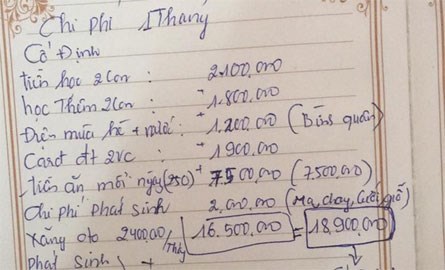 Chi phí 1 Tháng
Cố Định
tiền học 2 Con : 2.100,000
học Thêm 2 Con : - 1.800.000
Điện mùa hè + nước : + 1.200,000 (Bình quân)
Card đt 2VC : + 1 900,000
tiền ăn mỗi ngày (250) + 7.500,000 (7.500,000)
Chi phí phát sinh 2,000,000 (Ma chay, cưới giỗ)
Xăng oto 2400,000/Tháng 16.500,000 = 18.900,000
phát sinh